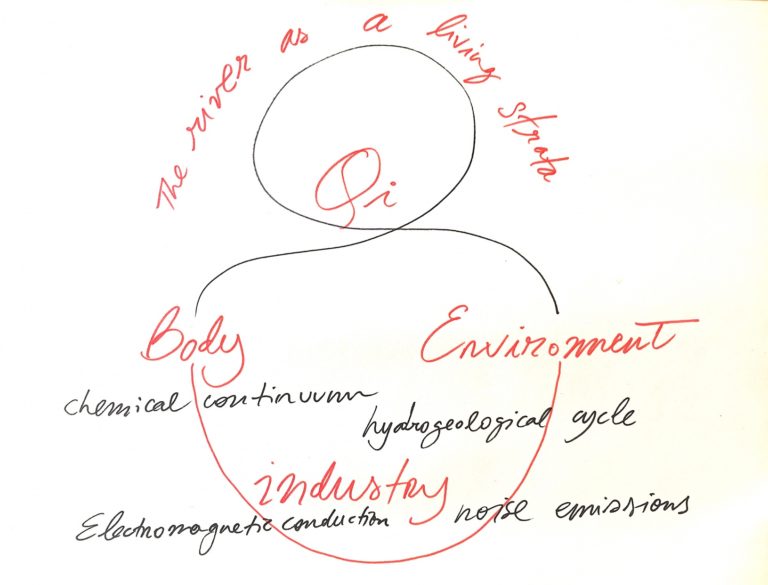 The river as a living strata
Qi
Body
Environment
chemical continuum
hydrogeological cycle
industry
Electromagnetic conduction
noise emissions